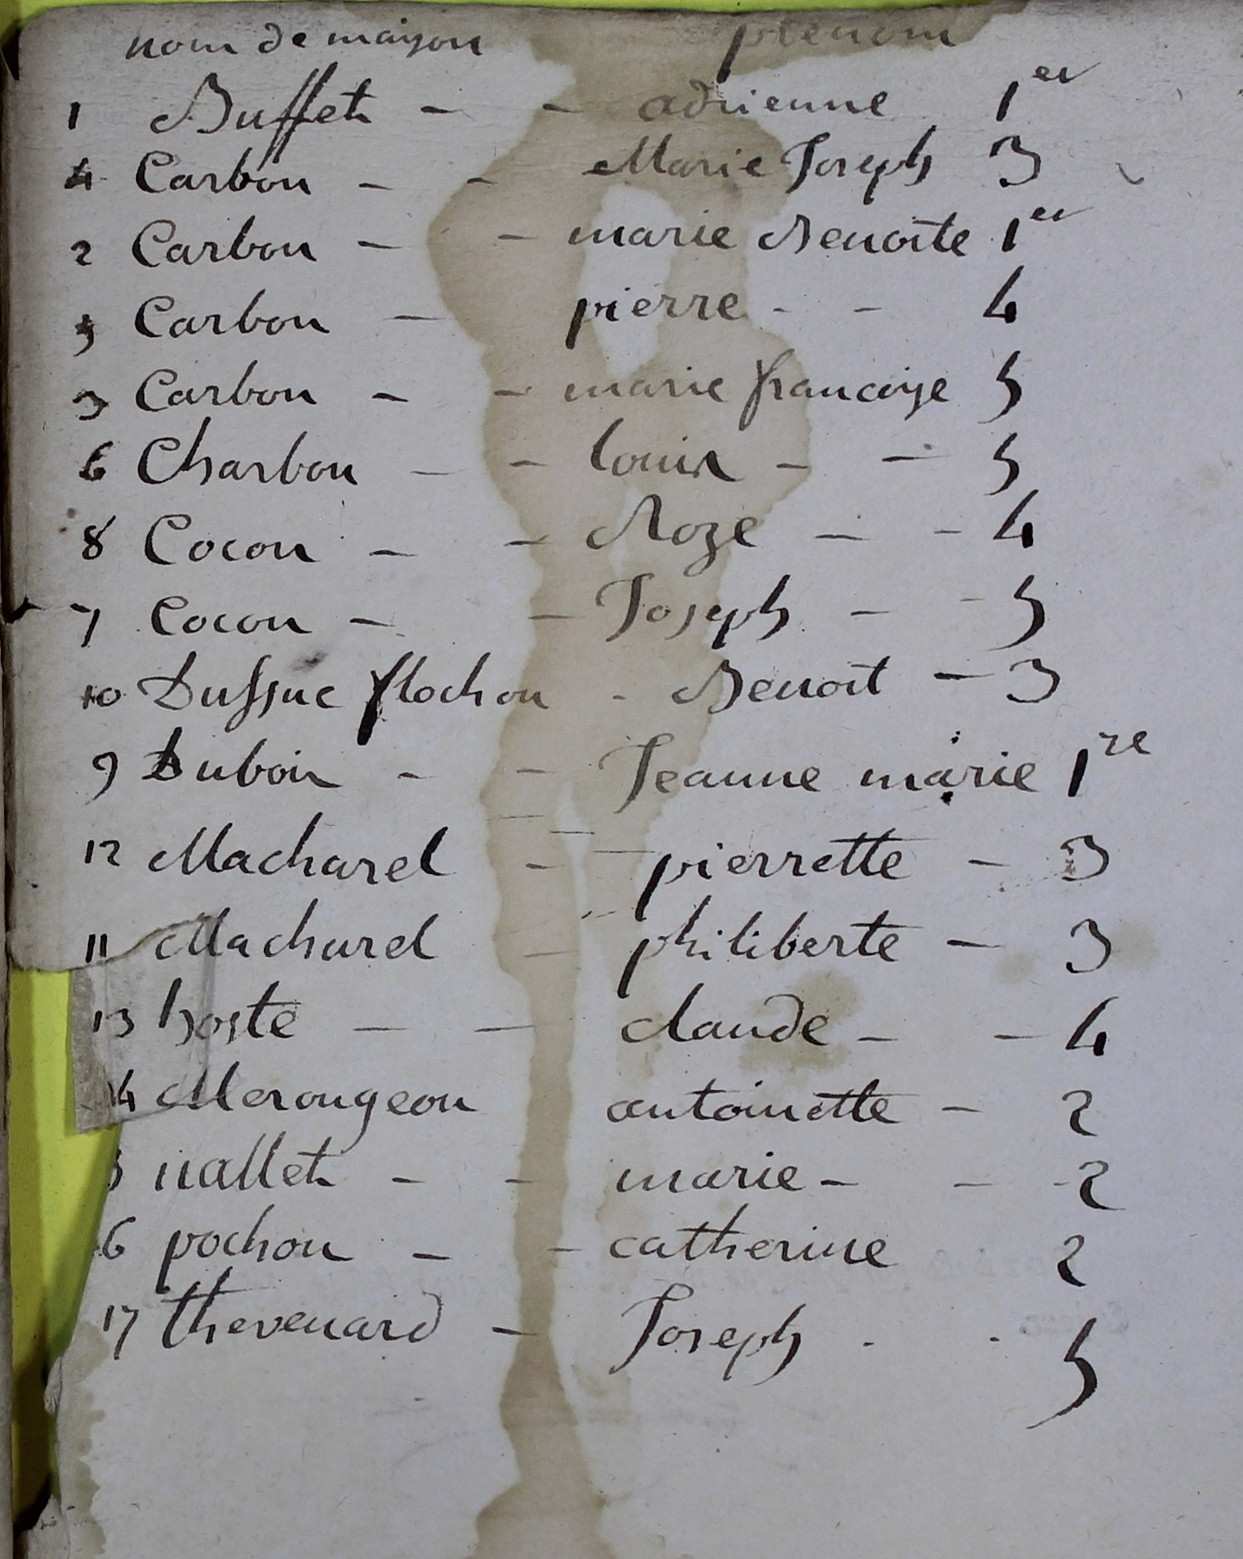 nom de maison prenom
1 Buffet - - adrienne 1er
4 Carbon - - Marie Joseph 3
2 Carbon - - marie Benoite 1er
5 Carbon - pierre - - 4
3 Carbon - - marie francoise 5
6 Charbon - - louis - - 5
8 Cocon - - Roze - - 4
7 Cocon - - Joseph - - 5
10 Dussuc flochon - Benoit - 3
9 Dubois - - Jeanne marie 1re
12 Macharel - pierrette - 3
11 Macharel - philiberte - 3
13 hoste - - claude - - 4
14 Merongeon antoinette - 2
5 nallet - - marie - - - 2
6 pochon - - catherine 2
17 thevenard - Joseph - - 5